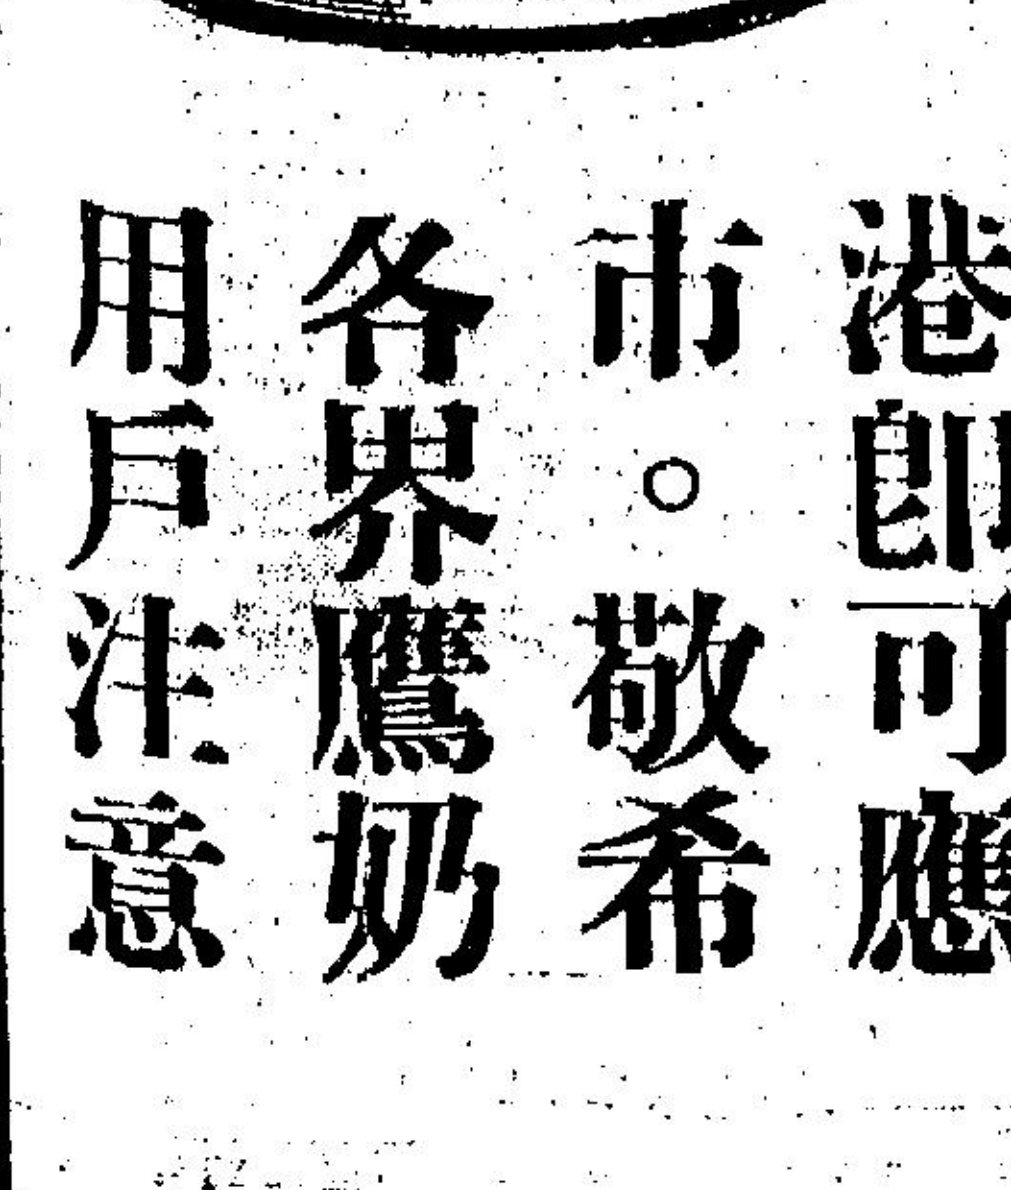 港卽可應
市。敬希
各界鷹奶
用戶注意